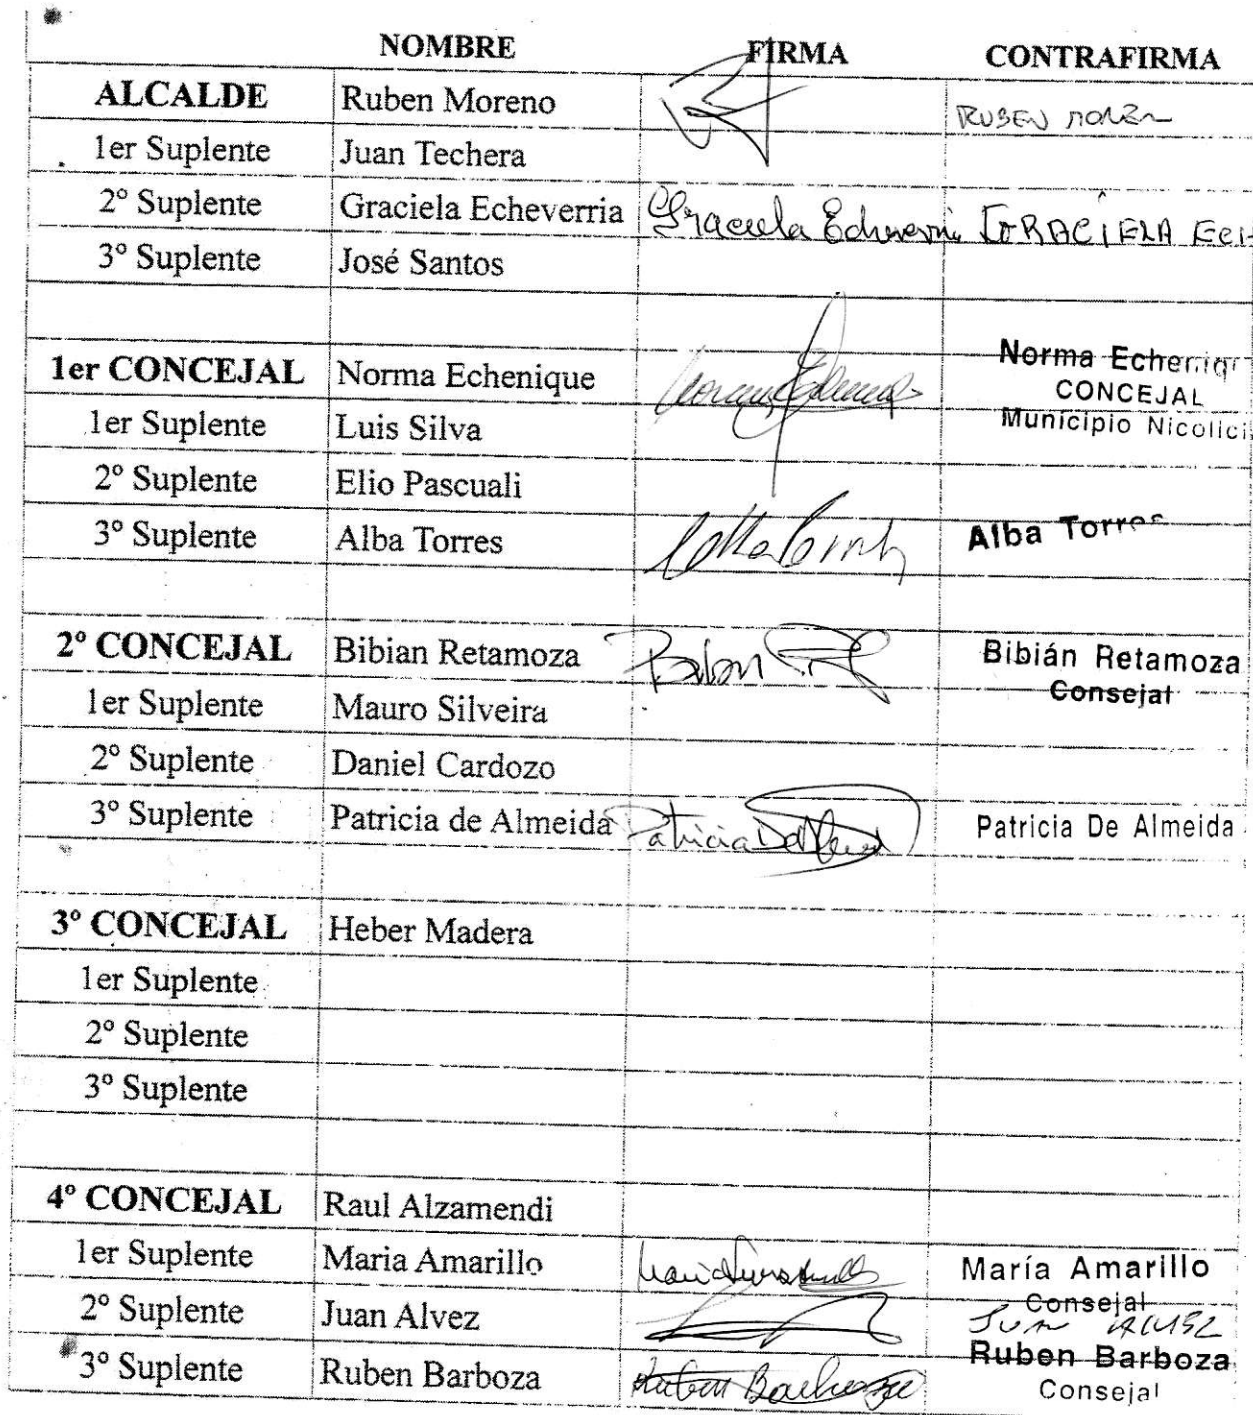 NOMBRE FIRMA CONTRAFIRMA
ALCALDE Ruben Moreno RUBEN
1er Suplente Juan Techera
2º Suplente Graciela Echeverria Graciela Echeverri GRACIELA ECH
3º Suplente José Santos
1er CONCEJAL Norma Echenique Norma Echeniq
CONCEJAL
1er Suplente Luis Silva Municipio Nicolic
2º Suplente Elio Pascuali
3º Suplente Alba Torres Alba Torres
2º CONCEJAL Bibian Retamoza Bibian Bibián Retamoza
Consejal
1er Suplente Mauro Silveira
2º Suplente Daniel Cardozo
3º Suplente Patricia de Almeida Patricia Patricia De Almeida
3º CONCEJAL Heber Madera
1er Suplente
2º Suplente
3º Suplente
4º CONCEJAL Raul Alzamendi
1er Suplente Maria Amarillo María Amarillo
Consejal
2º Suplente Juan Alvez JUAN
3º Suplente Ruben Barboza Ruben Barboza Ruben Barboza
Consejal